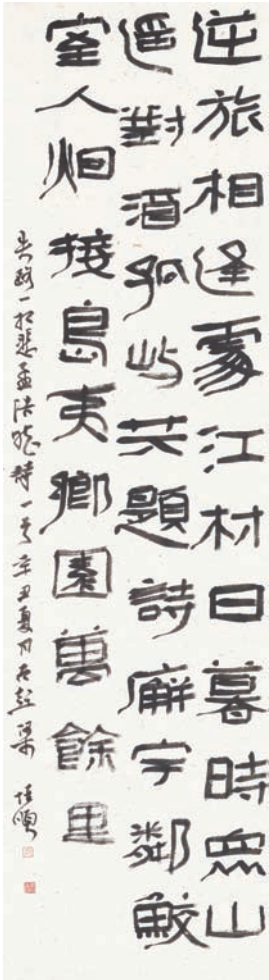 逆旅相逢處江村日暮時眾山
遥對酒孤屿共題詩廨宇鄰鮫
室人烟接島夷鄉園萬餘里
失路一相悲孟浩然詩一首辛丑夏月